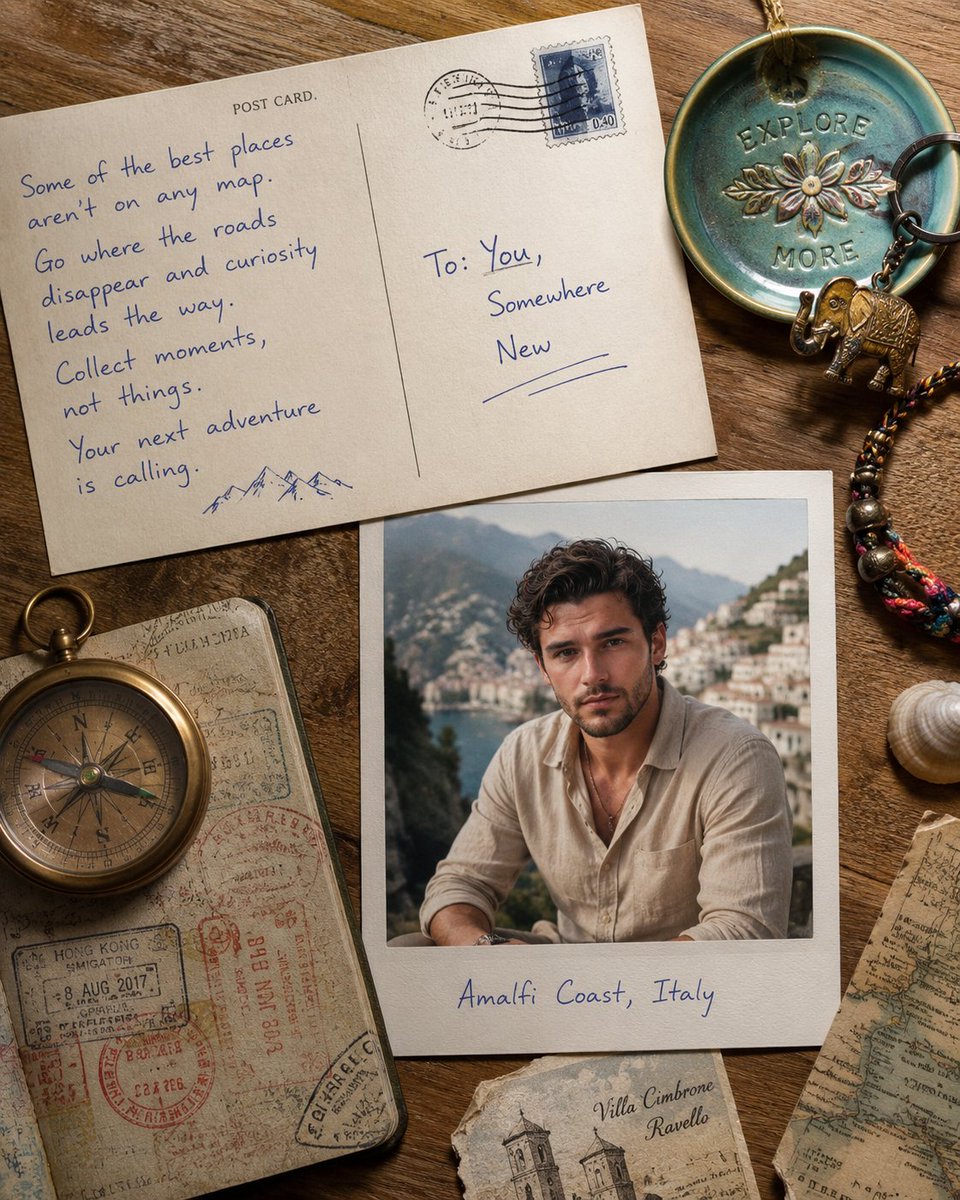 POST CARD.
Some of the best places
aren't on any map.
Go where the roads
disappear and curiosity
leads the way.
Collect moments,
not things.
Your next adventure
is calling.
0.40
To: You,
Somewhere
New
EXPLORE
MORE
N
S
HONG KONG
8 AUG 2017
Amalfi Coast, Italy
Villa Cimbrone
Ravello